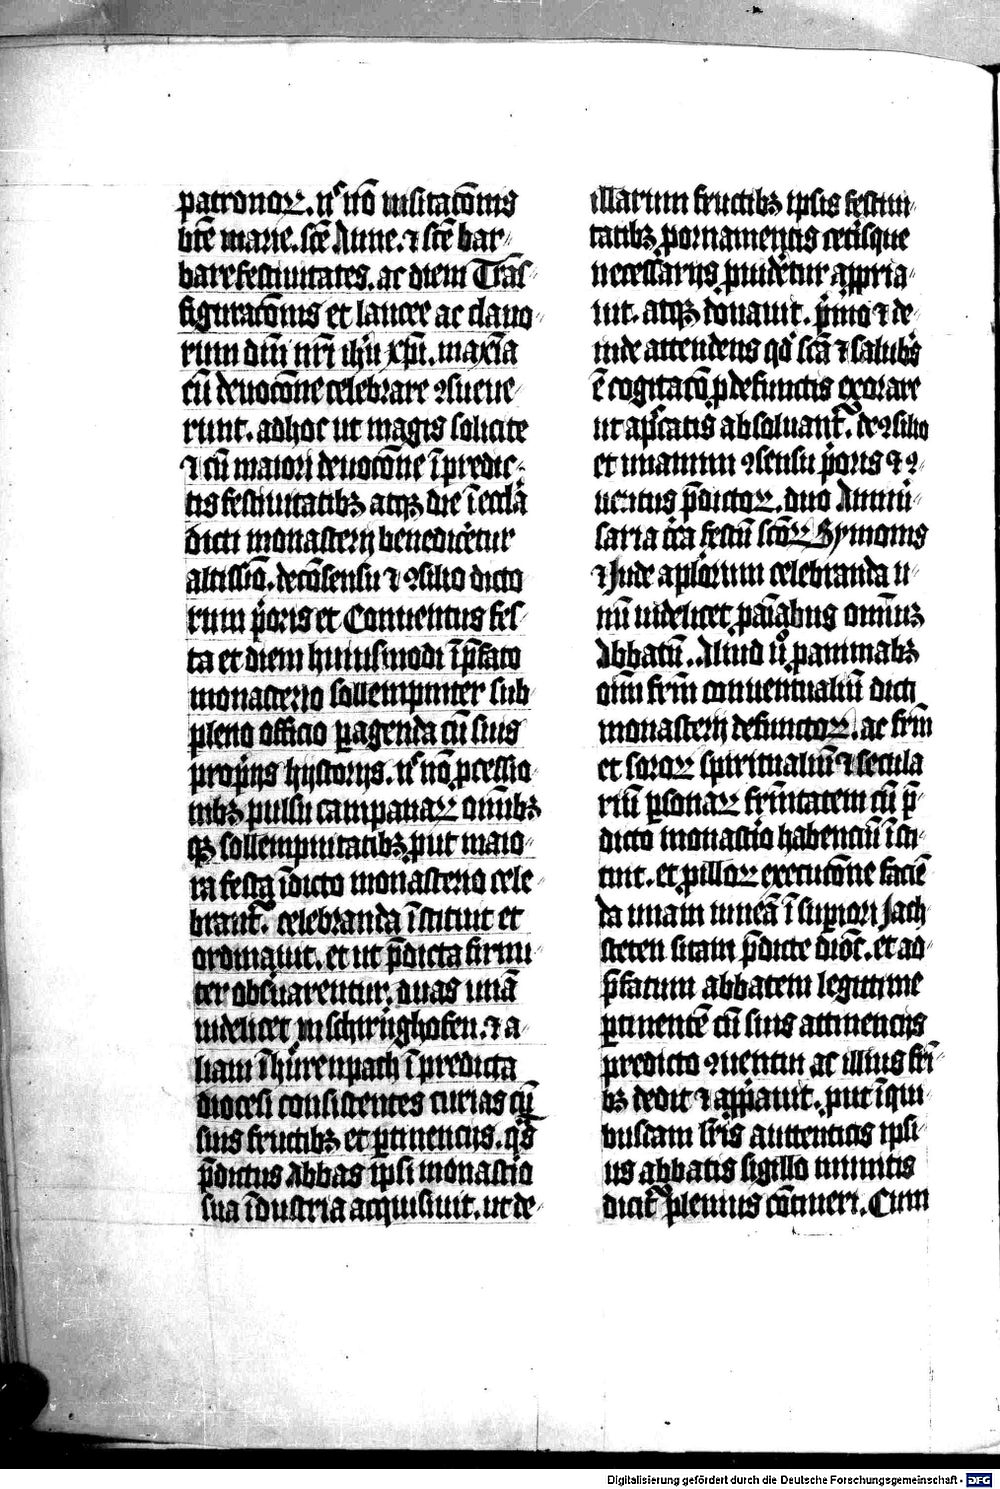 patronoꝝ. nͨ nō visitacōnis
bte᷒ marie. scē Anne. ⁊ scē bar⸗
bare festiuitates. ac diem Trās⸗
figuracōnis et lancee ac clauo⸗
rum dn̄i nr̄i ihū xp̄i. maxīa
cū deuocōne celebrare ꝯsueue⸗
runt. adhoc ut magis solicite
⁊ cū maiori deuocōne ī predic⸗
tis festiuitatibꝫ atqꝫ die ī eccłia
dicti monasterij benedicetur
altissiō. de cōsensu ⁊ ꝯsilio dicto
rum p̄oris et Conuentus fes⸗
ta et diem huiusmodi ī p̄fato
monasterio sollempniter sub
pleno officio ꝑagenda cū suis
proprijs hystorijs. nͨ nō ꝓcessio
nibꝫ pulsu campanaꝝ omībꝫ
qꝫ sollempnitatibꝫ ꝓut maio⸗
ra festa ī dicto monasterio cele⸗
brant᷑. celebranda īstituit et
ordinauit. et ut p̄dicta firmi⸗
ter obsuarentur. duas unā
uidelicet in schirnghofen. ⁊ a⸗
liam ī hürenpach ī predicta
diocesi consistentes curias cū
suis fructibꝫ et ꝑtinencijs. qͣs
p̄dictus Abbas ipsi monastio
sua īdustria acquisiuit. ut de⸗
illarum fructibꝫ ipsis festiui⸗
tatibꝫ ꝓ ornamentis cetisque
necessarijs ꝓuidetur appria⸗
uit. atqꝫ donauit. p̄mo ⁊ de⸗
inde attendens qđ scā ⁊ salubͥs
ē cogitacō ꝓ defunctis exorare
ut a pͨcatis absoluant᷑. de ꝯsilio
et unanimi ꝯsensu p̄oris ⁊ ꝯ⸗
uentus p̄dictoꝝ. duo Anniu⸗
saria cͥca festū scōꝝ Symonis
⁊ Jude aplōrum celebranda u⸗
nū uidelicet ꝓ aīabus omniuꝫ
Abbatū. Aliud ū ꝓ animabꝫ
oīm frm̄ conuentualiū dicti
monasterij defunctoꝝ. ac frm̄
et soroꝝ spiritualiū ⁊ secula
riū ꝑsonaꝝ frn̄itatem cū p̄⸗
dicto monastio habenciū īsti⸗
tuit. et ꝓ illoꝝ execucōne faciē
da unam uineā ī supiori Jach⸗
steten sitam p̄dicte diōc̄. et ad
p̄fatum abbatem legittime
ꝑtinentē cū suis attinencijs
predicto ꝯuentui ac illius fri⸗
bꝫ dedit ⁊ appͥauit. ꝓut ī qui⸗
busdam lr̄is auttenticis ipsi⸗
us abbatis sigillo munitis
dicit᷑ plenius cōtineri. Cum
Digitalisierung gefördert durch die Deutsche Forschungsgemeinschaft - DFG